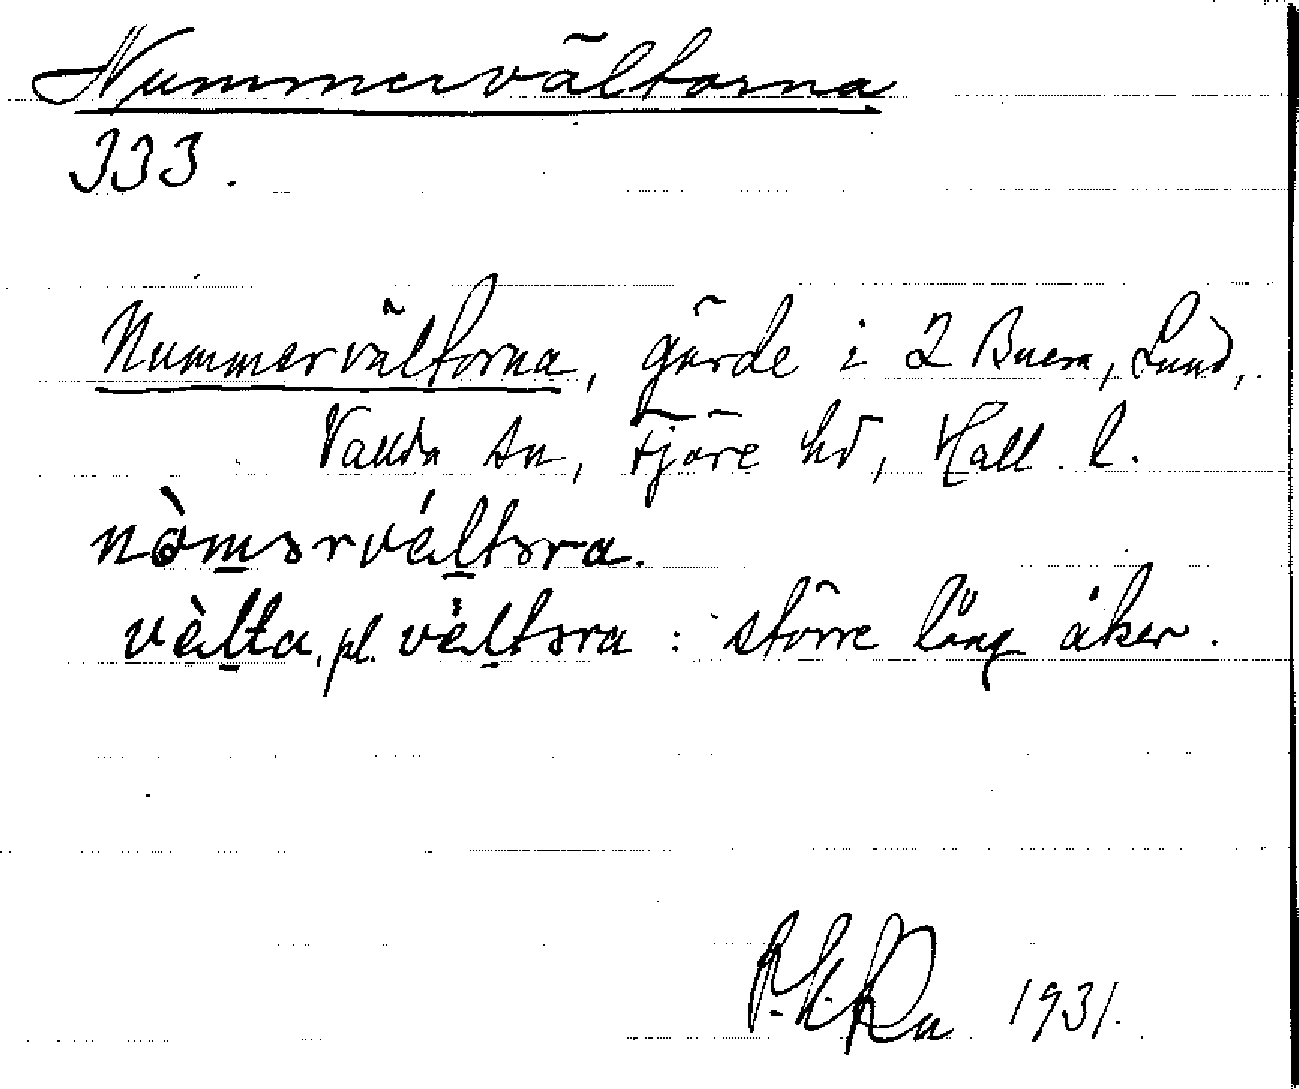 Nummervältorna
333.
Nummervältorna, gärde i 2 Buera, Lund,
Vallda sn, Fjäre hd, Hall. l.
nòmərvéltəra.
vèlta, pl. vèltəra: större lång åker.
1931.